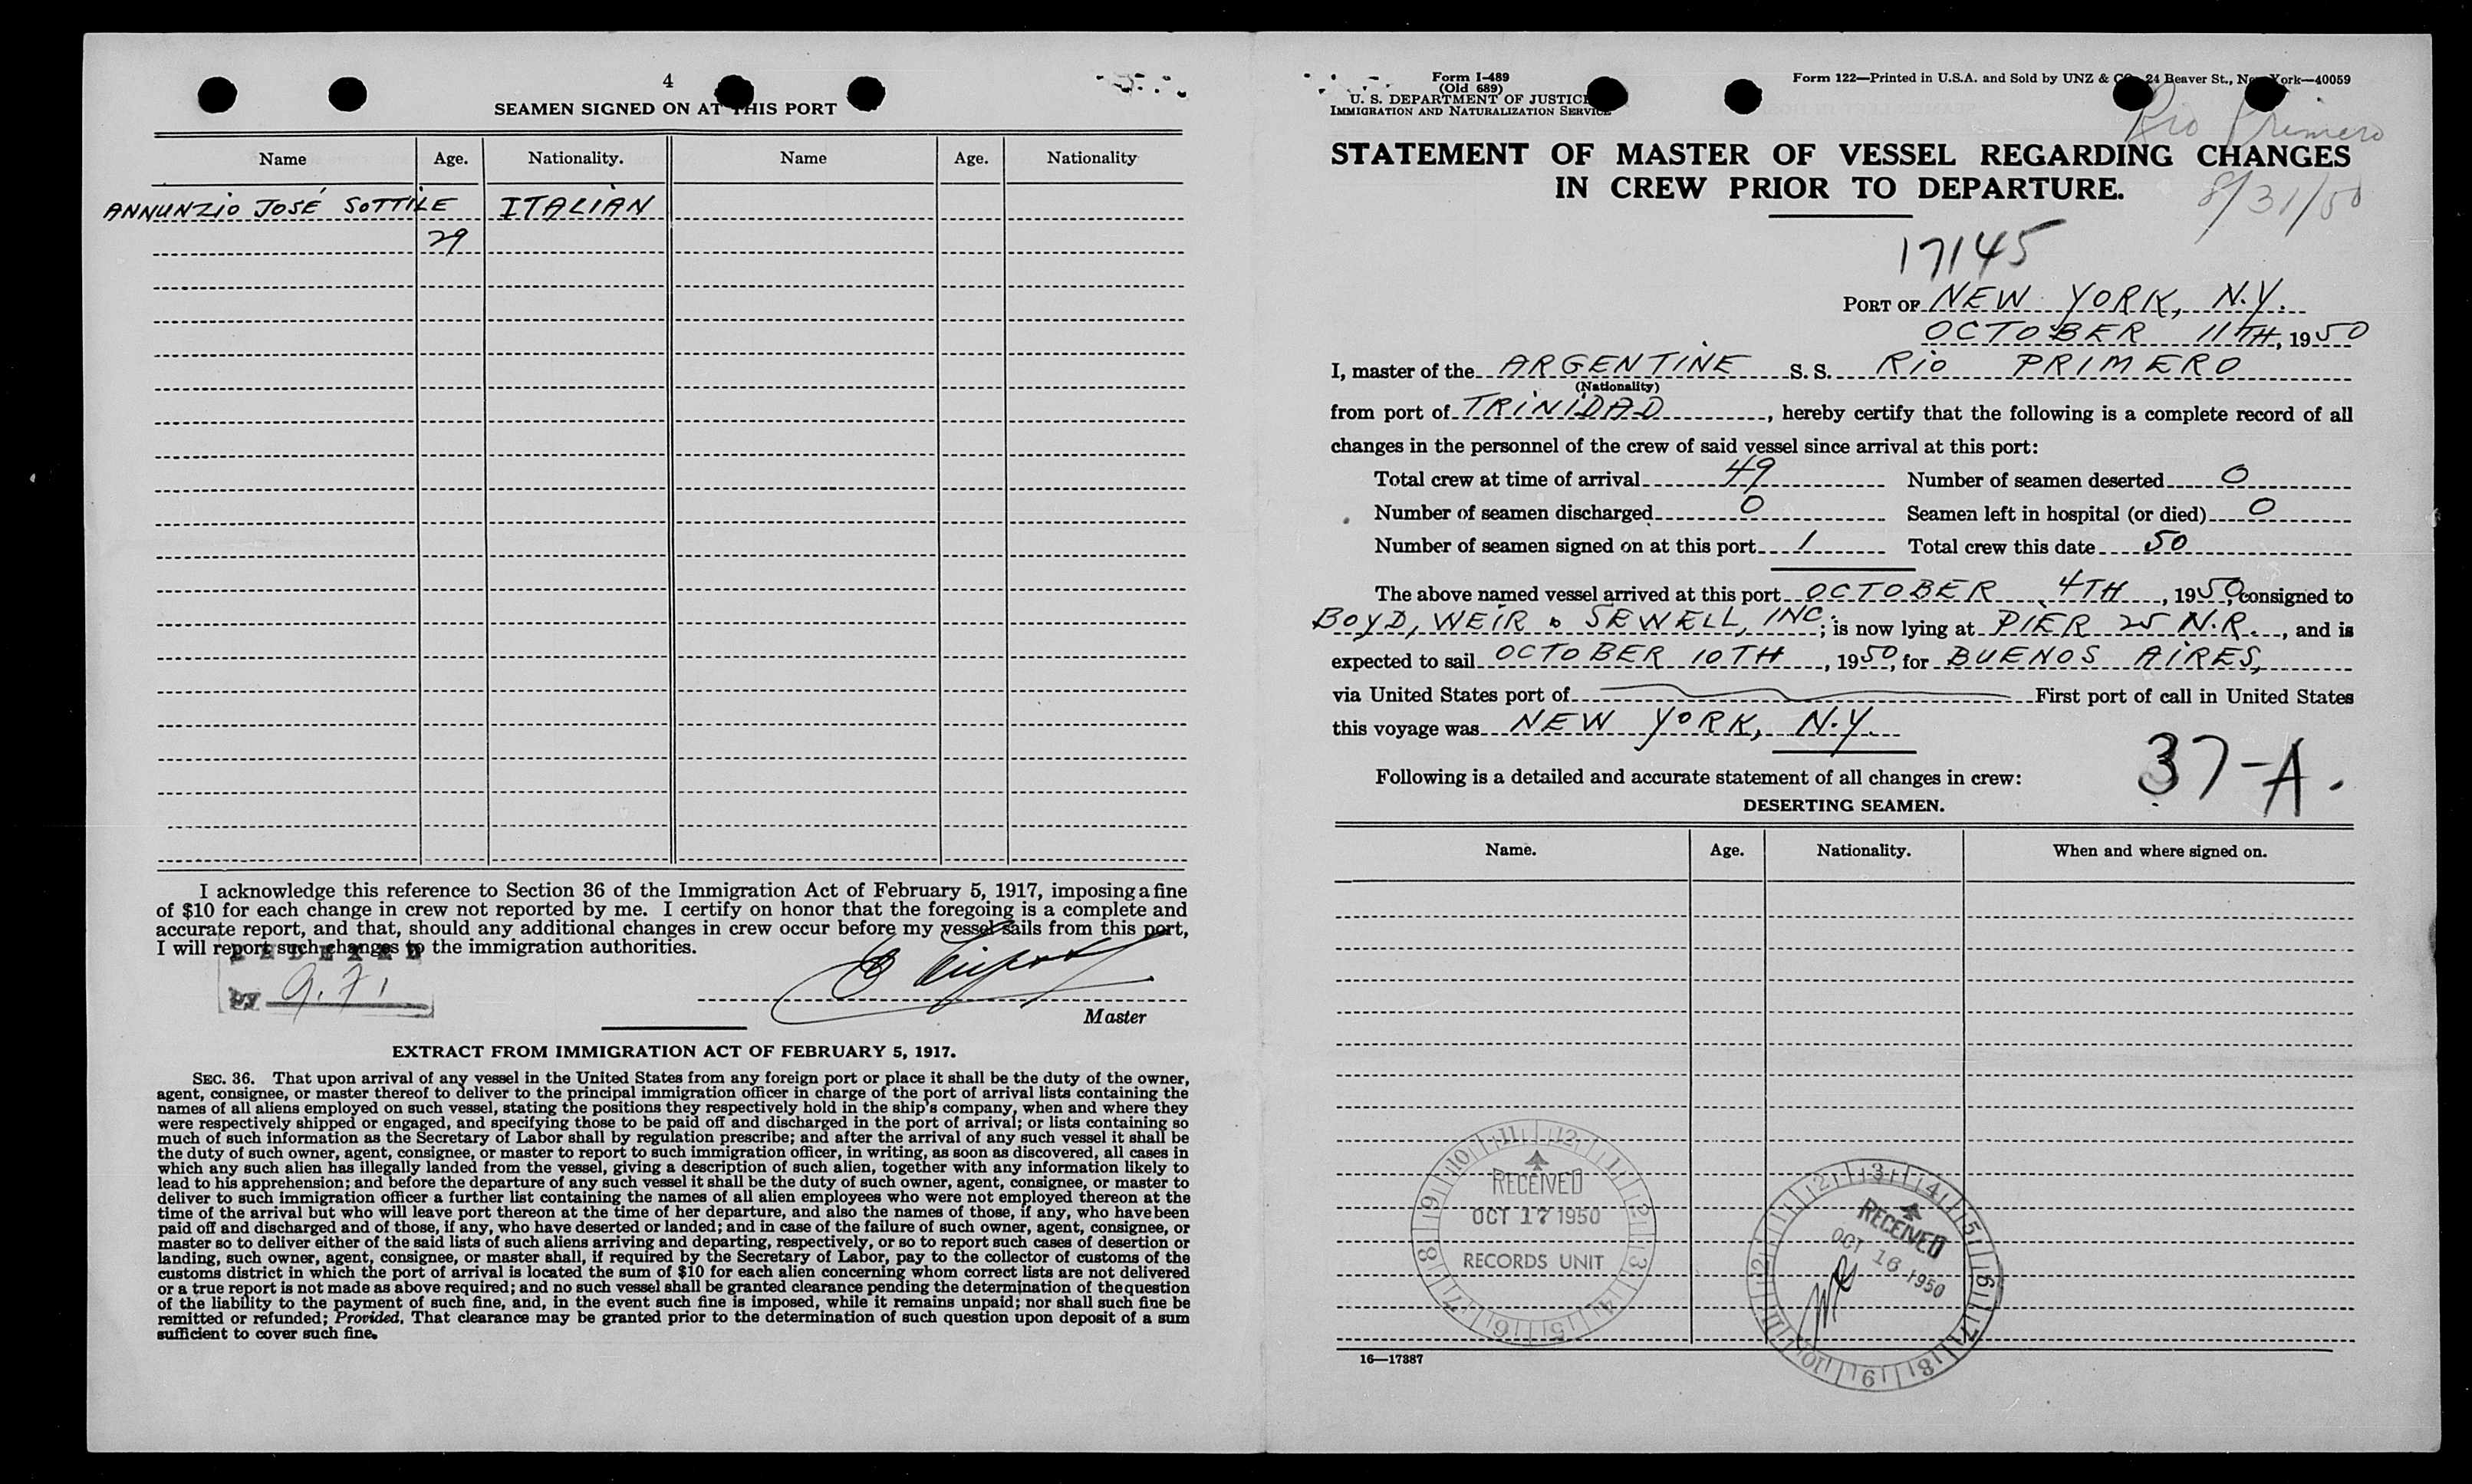 4
SEAMEN SIGNED ON AT THIS PORT
Name Age. Nationality. Name Age. Nationality
ANNUNZIO JOSÉ SOTTILE ITALIAN
29
I acknowledge this reference to Section 36 of the Immigration Act of February 5, 1917, imposing a fine
of $10 for each change in crew not reported by me. I certify on honor that the foregoing is a complete and
accurate report, and that, should any additional changes in crew occur before my vessel sails from this port,
I will report such changes to the immigration authorities.
by
Master
EXTRACT FROM IMMIGRATION ACT OF FEBRUARY 5, 1917.
SEC. 36. That upon arrival of any vessel in the United States from any foreign port or place it shall be the duty of the owner,
agent, consignee, or master thereof to deliver to the principal immigration officer in charge of the port of arrival lists containing the
names of all aliens employed on such vessel, stating the positions they respectively hold in the ship's company, when and where they
were respectively shipped or engaged, and specifying those to be paid off and discharged in the port of arrival; or lists containing so
much of such information as the Secretary of Labor shall by regulation prescribe; and after the arrival of any such vessel it shall be
the duty of such owner, agent, consignee, or master to report to such immigration officer, in writing, as soon as discovered, all cases in
which any such alien has illegally landed from the vessel, giving a description of such alien, together with any information likely to
lead to his apprehension; and before the departure of any such vessel it shall be the duty of such owner, agent, consignee, or master to
deliver to such immigration officer a further list containing the names of all alien employees who were not employed thereon at the
time of the arrival but who will leave port thereon at the time of her departure, and also the names of those, if any, who have been
paid off and discharged and of those, if any, who have deserted or landed; and in case of the failure of such owner, agent, consignee, or
master so to deliver either of the said lists of such aliens arriving and departing, respectively, or so to report such cases of desertion or
landing, such owner, agent, consignee, or master shall, if required by the Secretary of Labor, pay to the collector of customs of the
customs district in which the port of arrival is located the sum of $10 for each alien concerning whom correct lists are not delivered
or a true report is not made as above required; and no such vessel shall be granted clearance pending the determination of the question
of the liability to the payment of such fine, and, in the event such fine is imposed, while it remains unpaid; nor shall such fine be
remitted or refunded; Provided, That clearance may be granted prior to the determination of such question upon deposit of a sum
sufficient to cover such fine.
Form I-489
(Old 689)
U. S. DEPARTMENT OF JUSTICE
IMMIGRATION AND NATURALIZATION SERVICE
Form 122—Printed in U.S.A. and Sold by UNZ & CO. 24 Beaver St., New York—40059
Rio Primero
STATEMENT OF MASTER OF VESSEL REGARDING CHANGES
IN CREW PRIOR TO DEPARTURE.
8/31/50
17145
PORT OF NEW YORK, N.Y.
OCTOBER 11TH, 1950
I, master of the ARGENTINE S. S. RIO PRIMERO
(Nationality)
from port of TRINIDAD, hereby certify that the following is a complete record of all
changes in the personnel of the crew of said vessel since arrival at this port:
Total crew at time of arrival 49 Number of seamen deserted 0
Number of seamen discharged 0 Seamen left in hospital (or died) 0
Number of seamen signed on at this port 1 Total crew this date 50
The above named vessel arrived at this port OCTOBER 4TH, 1950, consigned to
BOYD, WEIR & SEWELL, INC.; is now lying at PIER 25 N.R., and is
expected to sail OCTOBER 10TH, 1950, for BUENOS AIRES,
via United States port of First port of call in United States
this voyage was NEW YORK, N.Y.
37-A.
Following is a detailed and accurate statement of all changes in crew:
DESERTING SEAMEN.
Name. Age. Nationality. When and where signed on.
RECEIVED
OCT 17 1950
RECORDS UNIT
RECEIVED
OCT 16 1950
16—17887